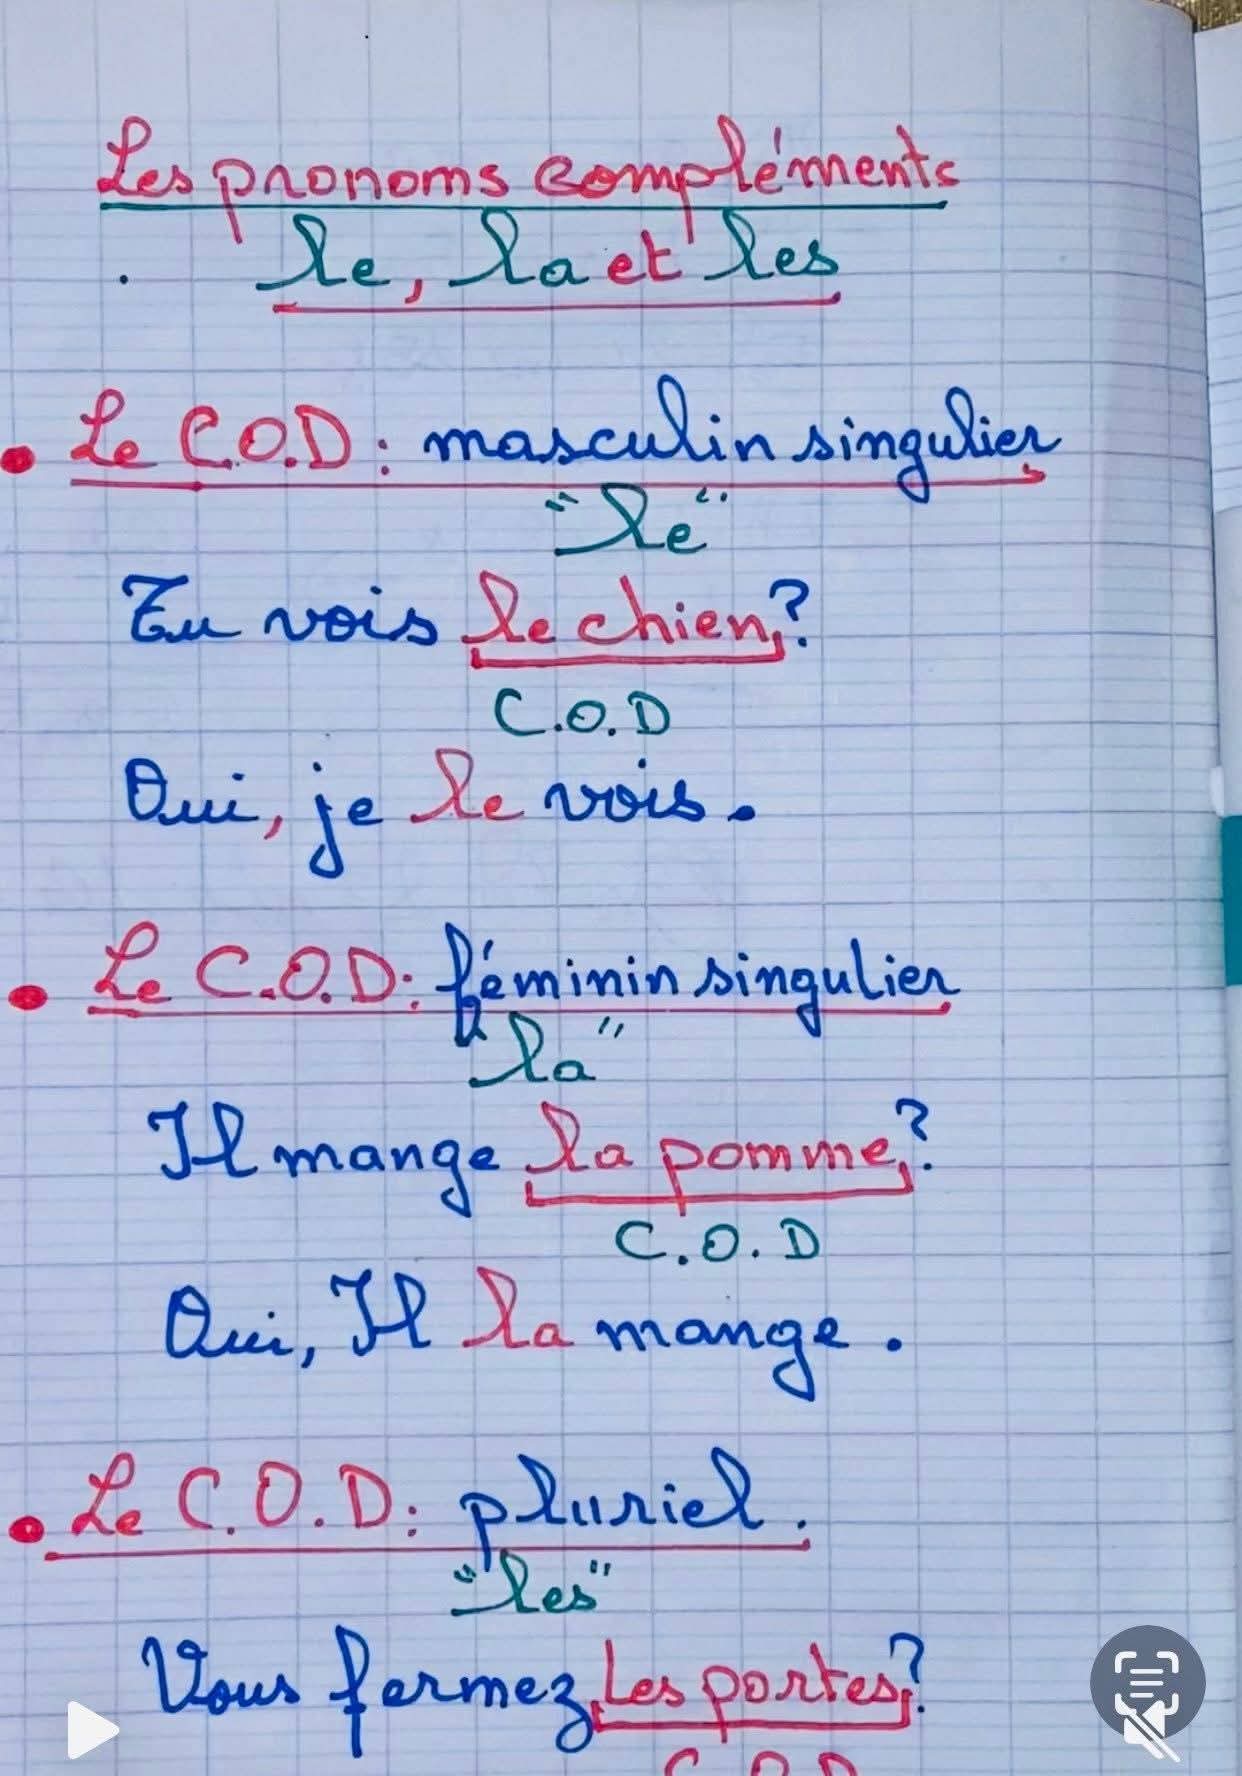 Les pronoms compléments
le, la et les
• Le C.O.D : masculin singulier
"le"
Tu vois le chien ?
C.O.D
Oui, je le vois.
• Le C.O.D : féminin singulier
"la"
Il mange la pomme ?
C.O.D
Oui, Il la mange.
• Le C.O.D : pluriel.
"les"
Vous fermez les portes ?
C.O.D